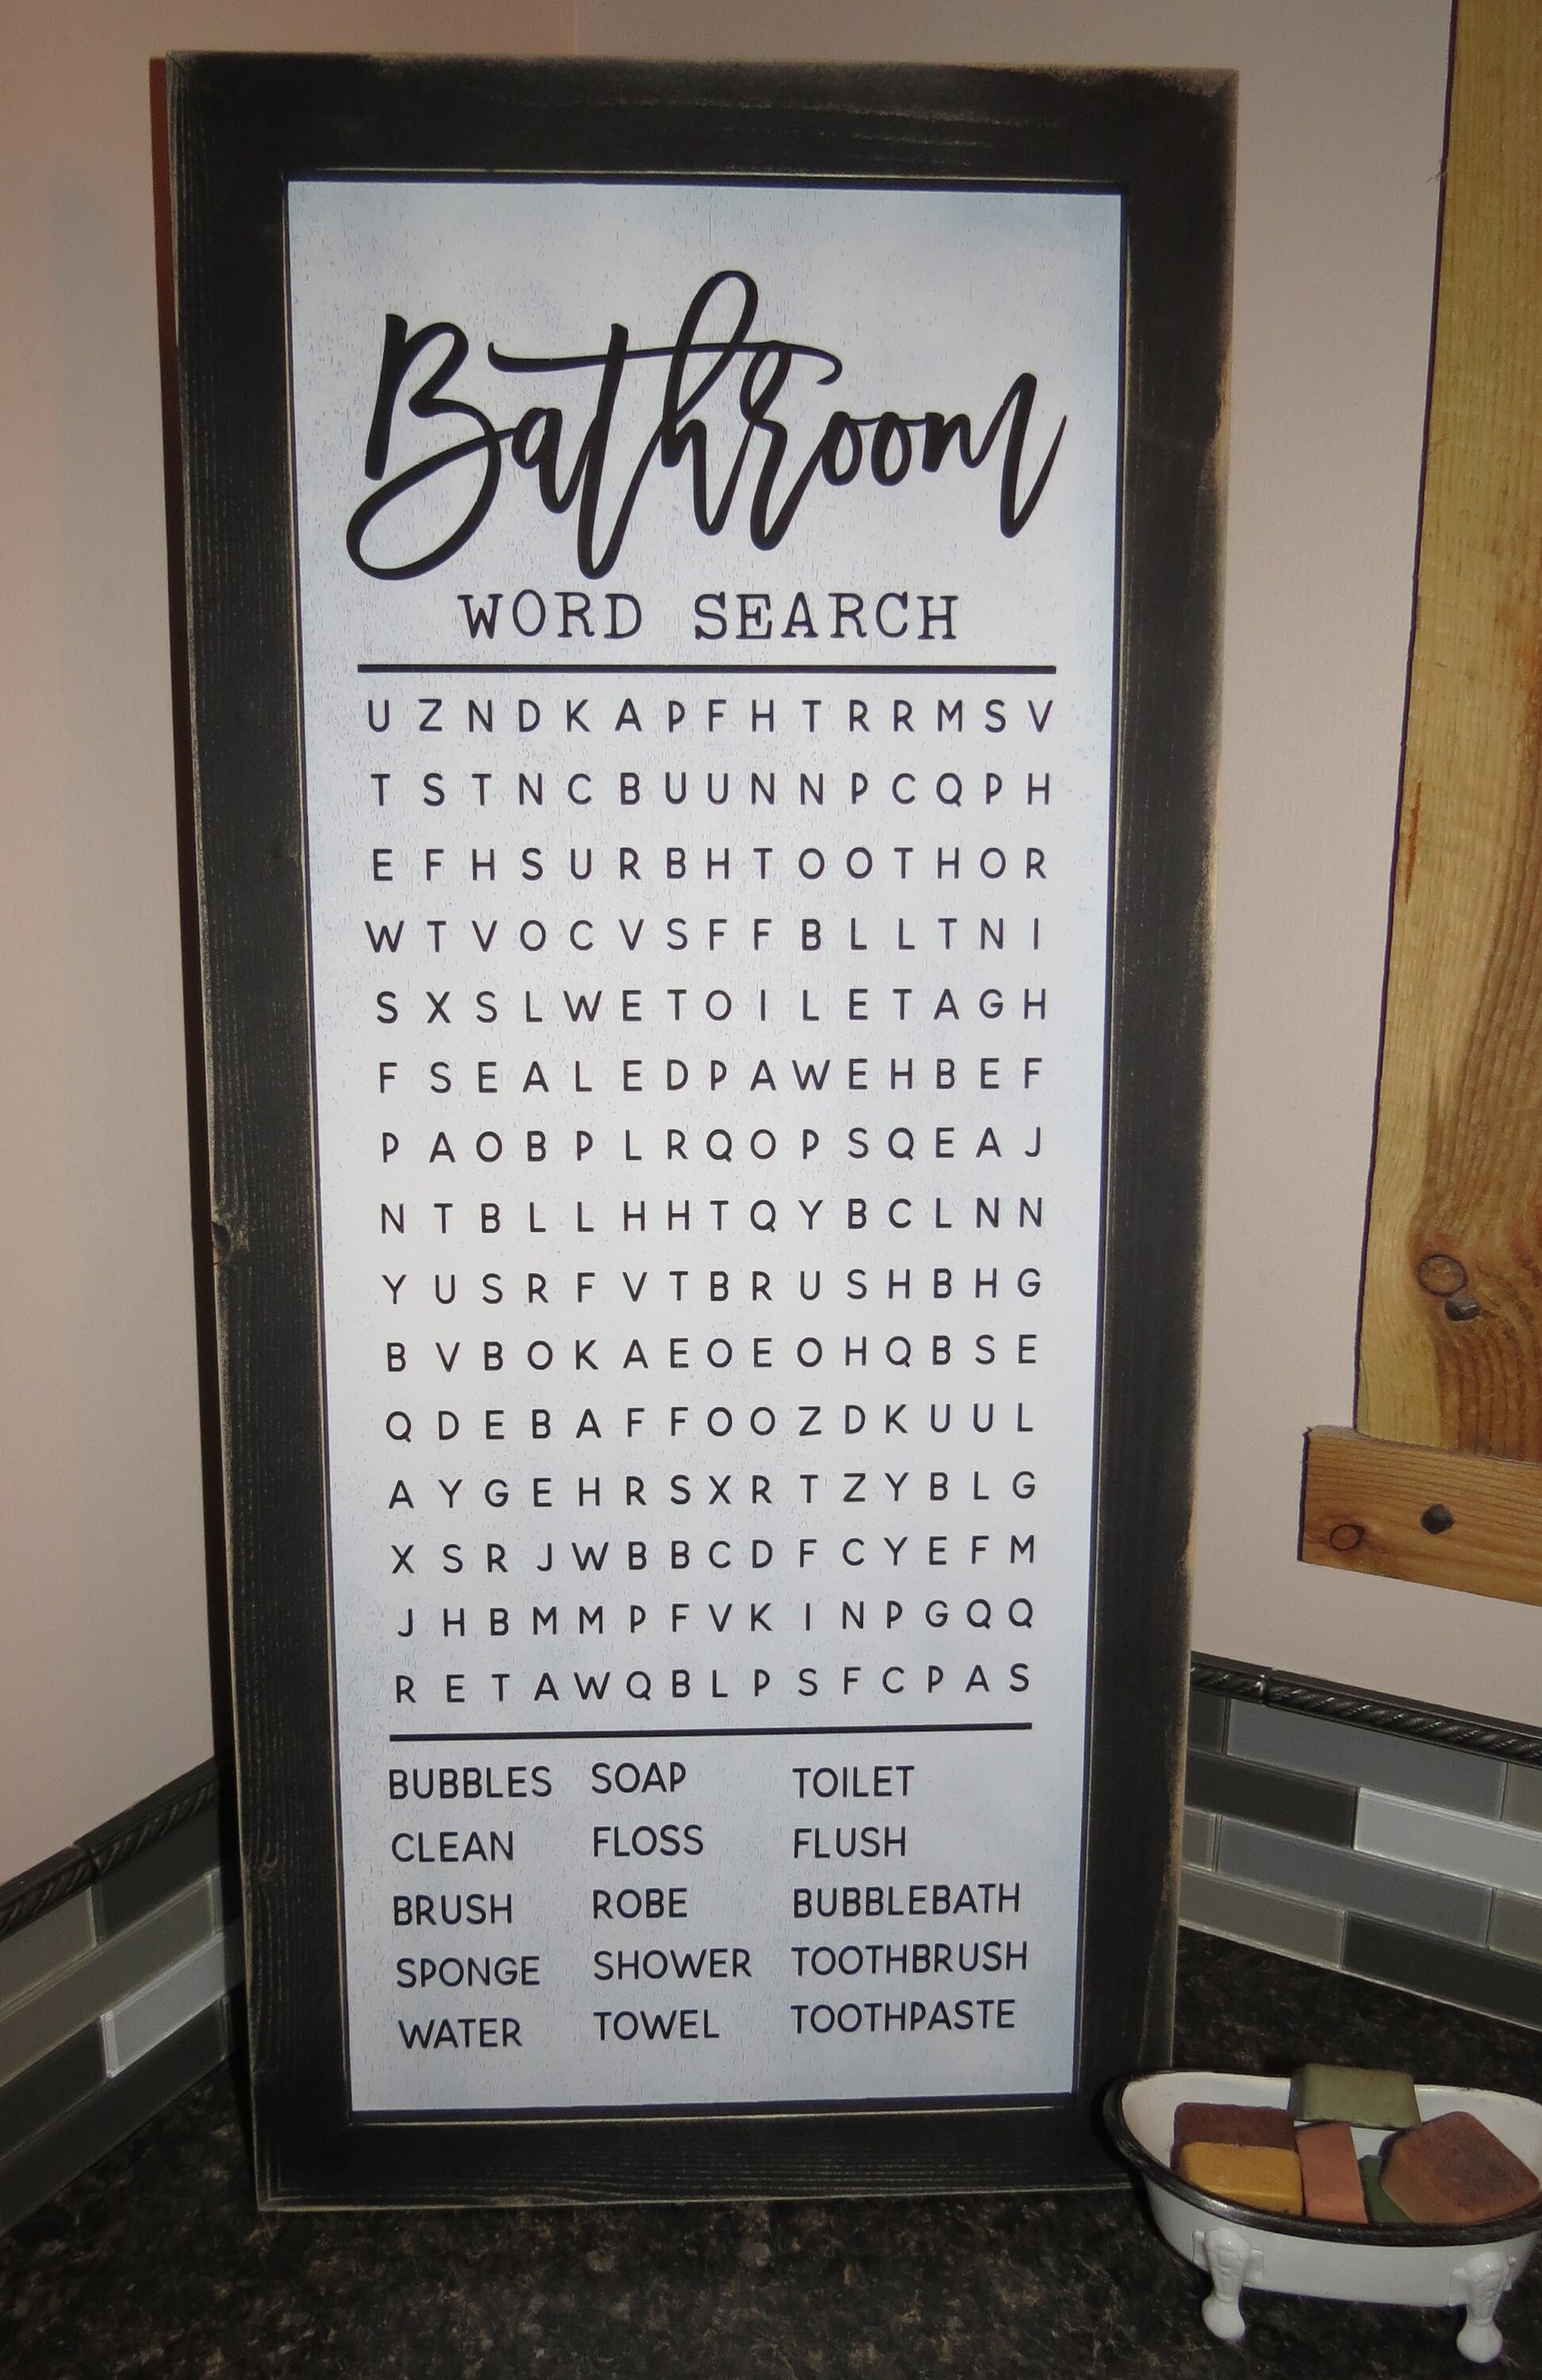 Bathroom
WORD SEARCH
U Z N D K A P F H T R R M S V
T S T N C B U U N N P C Q P H
E F H S U R B H T O O T H O R
W T V O C V S F F B L L T N I
S X S L W E T O I L E T A G H
F S E A L E D P A W E H B E F
P A O B P L R Q O P S Q E A J
N T B L L H H T Q Y B C L N N
Y U S R F V T B R U S H B H G
B V B O K A E O E O H Q B S E
Q D E B A F F O O Z D K U U L
A Y G E H R S X R T Z Y B L G
X S R J W B B C D F C Y E F M
J H B M M P F V K I N P G Q Q
R E T A W Q B L P S F C P A S
BUBBLES SOAP TOILET
CLEAN FLOSS FLUSH
BRUSH ROBE BUBBLEBATH
SPONGE SHOWER TOOTHBRUSH
WATER TOWEL TOOTHPASTE